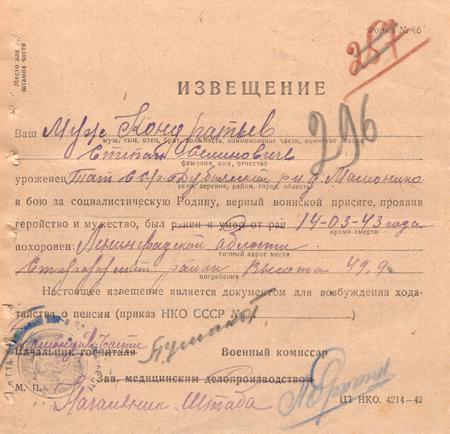 Форма № 46
Место для
штампа части
257
ИЗВЕЩЕНИЕ
296
Ваш Муж Кондратьев
муж, сын, отец, брат, должность, наименование части, воинское звание
Степан
фамилия, имя, отчество
уроженец Тат ССР
село, деревня, район, город, область
в бою за социалистическую Родину, верный воинской присяге, проявив
геройство и мужество, был ранен и умер от ран 14-03-43 года
время смерти
похоронен: Ленинградской области
точный адрес места
район Высота 49,9
погребения
Настоящее извещение является документом для возбуждения хода-
тайства о пенсии (приказ НКО СССР №
Командир Части
Начальник госпиталя
Военный комиссар
М. П.
Зав. медицинским делопроизводством
Начальник Штаба
ЦТ НКО. 4214—42